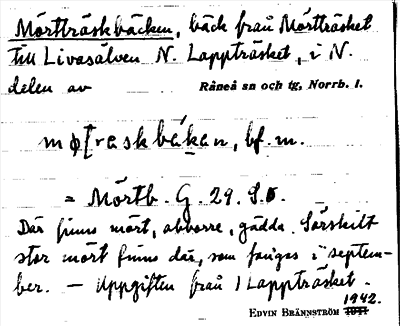 Mörtträskbäcken, bäck från Mörtträsket
till Livasälven N. Lappträsket, i N.
delen av Råneå sn och tg, Norrb. l.
mφ[raskbäkan, bf. m.
= Mörtb. G. 29. S.Ö.
Där finns mört, abborre, gädda. Särskilt
stor mört finns där, som fångas i septem-
ber. — Uppgiften från 1 Lappträsket.
1942.
EDVIN BRÄNNSTRÖM 1941